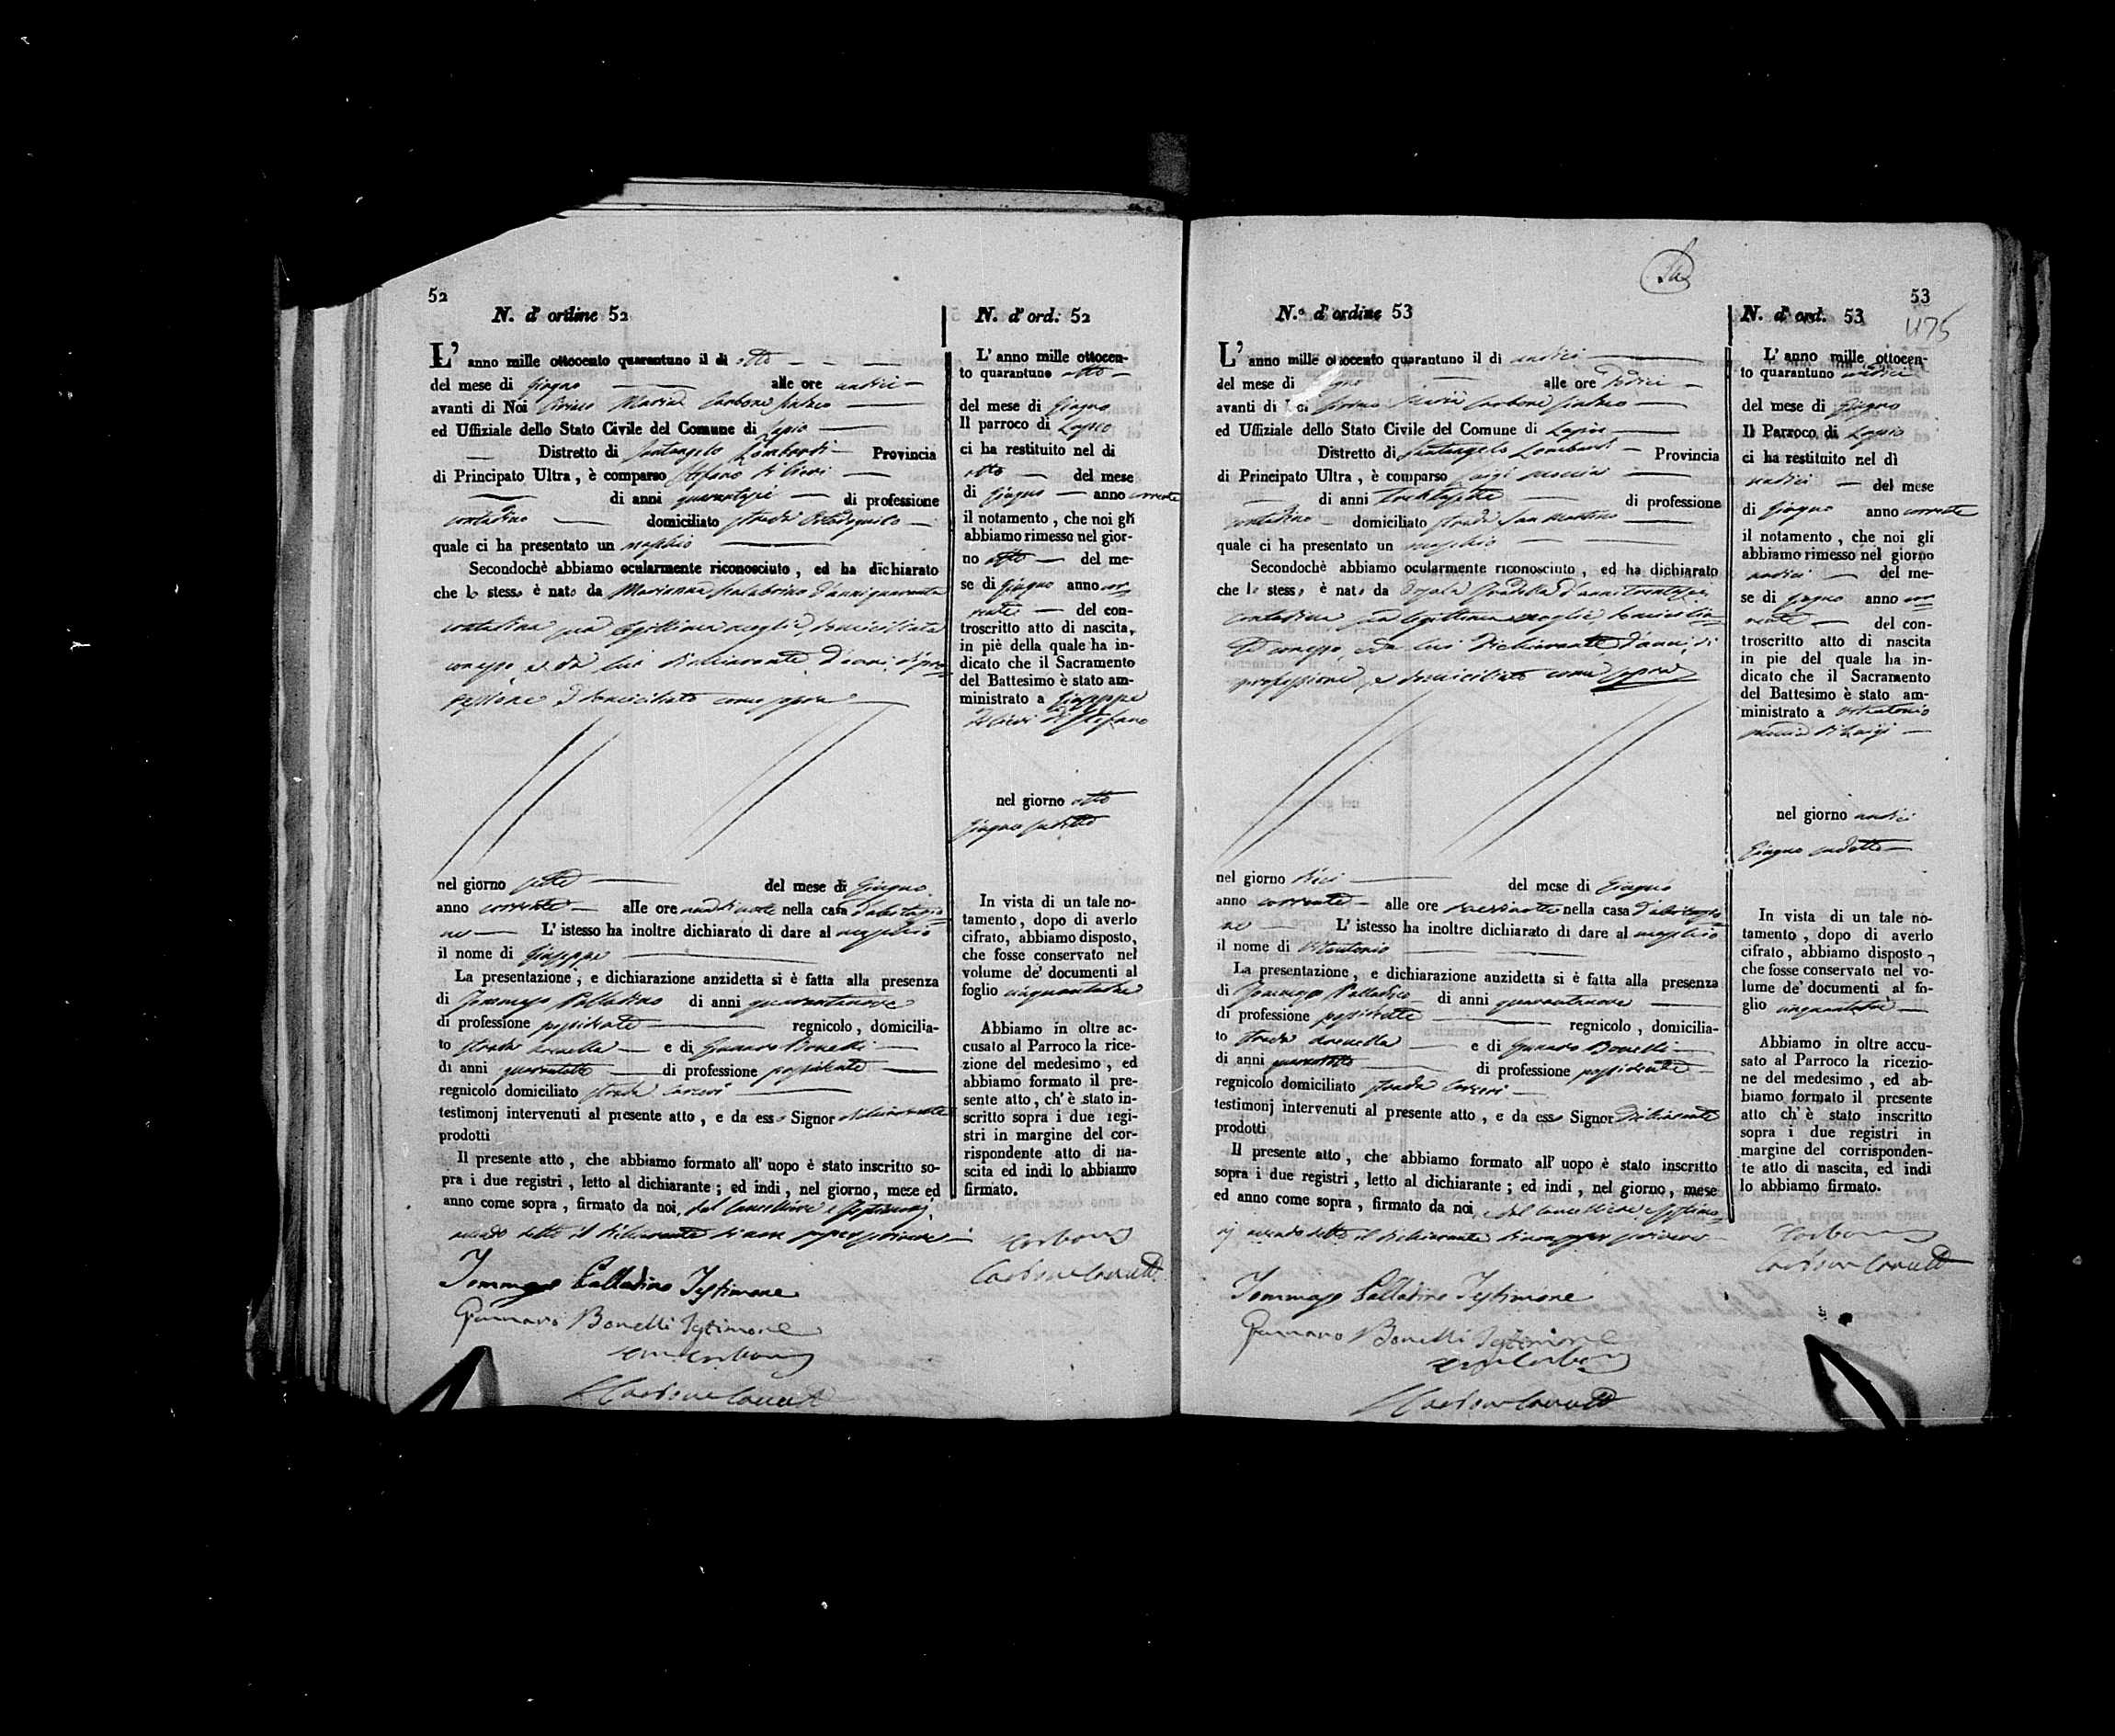 52
N. d' ordine 52
L' anno mille ottocento quarantuno il di otto
del mese di Giugno alle ore undici
avanti di Noi Maria Carbone Sindaco
ed Uffiziale dello Stato Civile del Comune di Lapio
Distretto di Santangelo Lombardi Provincia
di Principato Ultra, è comparso Stefano
di anni di professione
contadino domiciliato strada
quale ci ha presentato un maschio
Secondochè abbiamo ocularmente riconosciuto, ed ha dichiarato
che lo stesso è nato da Marianna Scalabrino d'anni quaranta
contadina sua legittima moglie domiciliata
con esso e da lui dichiarante d'anni, di pro=
fessione e domiciliato come sopra
nel giorno sette del mese di Giugno
anno corrente alle ore nella casa d'abitazio=
ne L' istesso ha inoltre dichiarato di dare al maschio
il nome di Giuseppe
La presentazione, e dichiarazione anzidetta si è fatta alla presenza
di Tommaso Palladino di anni quarantanove
di professione possidente regnicolo, domicilia-
to strada e di Gennaro Bonelli
di anni quarantotto di professione possidente
regnicolo domiciliato strada Carceri
testimonj intervenuti al presente atto, e da esso Signor dichiarante
prodotti
Il presente atto, che abbiamo formato all' uopo è stato inscritto so-
pra i due registri, letto al dichiarante; ed indi, nel giorno, mese ed
anno come sopra, firmato da noi, dal Cancelliere e Testimonj
avendo detto il dichiarante di non saper scrivere
Tommaso Palladino Testimone
Gennaro Bonelli Testimone
Carbone
Carbone
N. d' ord: 52
L' anno mille ottocen-
to quarantuno otto
del mese di Giugno
Il parroco di Lapio
ci ha restituito nel di
otto del mese
di Giugno anno corrente
il notamento, che noi gli
abbiamo rimesso nel gior-
no otto del me-
se di Giugno anno cor=
rente del con-
troscritto atto di nascita,
in piè della quale ha in-
dicato che il Sacramento
del Battesimo è stato am-
ministrato a Giuseppe
di Stefano
nel giorno otto
Giugno sudetto
In vista di un tale no-
tamento, dopo di averlo
cifrato, abbiamo disposto,
che fosse conservato nel
volume de' documenti al
foglio
Abbiamo in oltre ac-
cusato al Parroco la rice-
zione del medesimo, ed
abbiamo formato il pre-
sente atto, ch' è stato in-
scritto sopra i due regi-
stri in margine del cor-
rispondente atto di na-
scita ed indi lo abbiamo
firmato.
Carbone
Carbone
53
475
N.º d' ordine 53
L' anno mille ottocento quarantuno il di undici
del mese di alle ore dodici
avanti di Carbone Sindaco
ed Uffiziale dello Stato Civile del Comune di Lapio
Distretto di Santangelo Lombardi Provincia
di Principato Ultra, è comparso Luigi
di anni trentasette di professione
contadino domiciliato strada San Martino
quale ci ha presentato un maschio
Secondochè abbiamo ocularmente riconosciuto, ed ha dichiarato
che lo stesso è nato da d'anni
contadina sua legittima moglie domicilia=
ta con esso e da lui dichiarante d'anni, di
professione, e domiciliato come sopra
nel giorno dieci del mese di Giugno
anno corrente alle ore nella casa d'abitazio=
ne L' istesso ha inoltre dichiarato di dare al maschio
il nome di Vitantonio
La presentazione, e dichiarazione anzidetta si è fatta alla presenza
di Tommaso Palladino di anni quarantanove
di professione possidente regnicolo, domicilia-
to strada e di Gennaro Bonelli
di anni quarantotto di professione possidente
regnicolo domiciliato strada Carceri
testimonj intervenuti al presente atto, e da esso Signor dichiarante
prodotti
Il presente atto, che abbiamo formato all' uopo è stato inscritto
sopra i due registri, letto al dichiarante; ed indi, nel giorno, mese
ed anno come sopra, firmato da noi, dal Cancelliere e Testimo=
nj avendo detto il dichiarante di non saper scrivere
Tommaso Palladino Testimone
Gennaro Bonelli Testimone
Carbone
Carbone
N. d' ord. 53
L' anno mille ottocen-
to quarantuno undici
del mese di Giugno
Il Parroco di Lapio
ci ha restituito nel dì
undici del mese
di Giugno anno corrente
il notamento, che noi gli
abbiamo rimesso nel giorno
undici del me-
se di Giugno anno cor=
rente del con-
troscritto atto di nascita
in pie del quale ha in-
dicato che il Sacramento
del Battesimo è stato am-
ministrato a Vitantonio
di Luigi
nel giorno undici
Giugno sudetto
In vista di un tale no-
tamento, dopo di averlo
cifrato, abbiamo disposto,
che fosse conservato nel vo-
lume de' documenti al fo-
glio
Abbiamo in oltre accu-
sato al Parroco la ricezio-
ne del medesimo, ed ab-
biamo formato il presente
atto ch' è stato inscritto
sopra i due registri in
margine del corrisponden-
te atto di nascita, ed indi
lo abbiamo firmato.
Carbone
Carbone